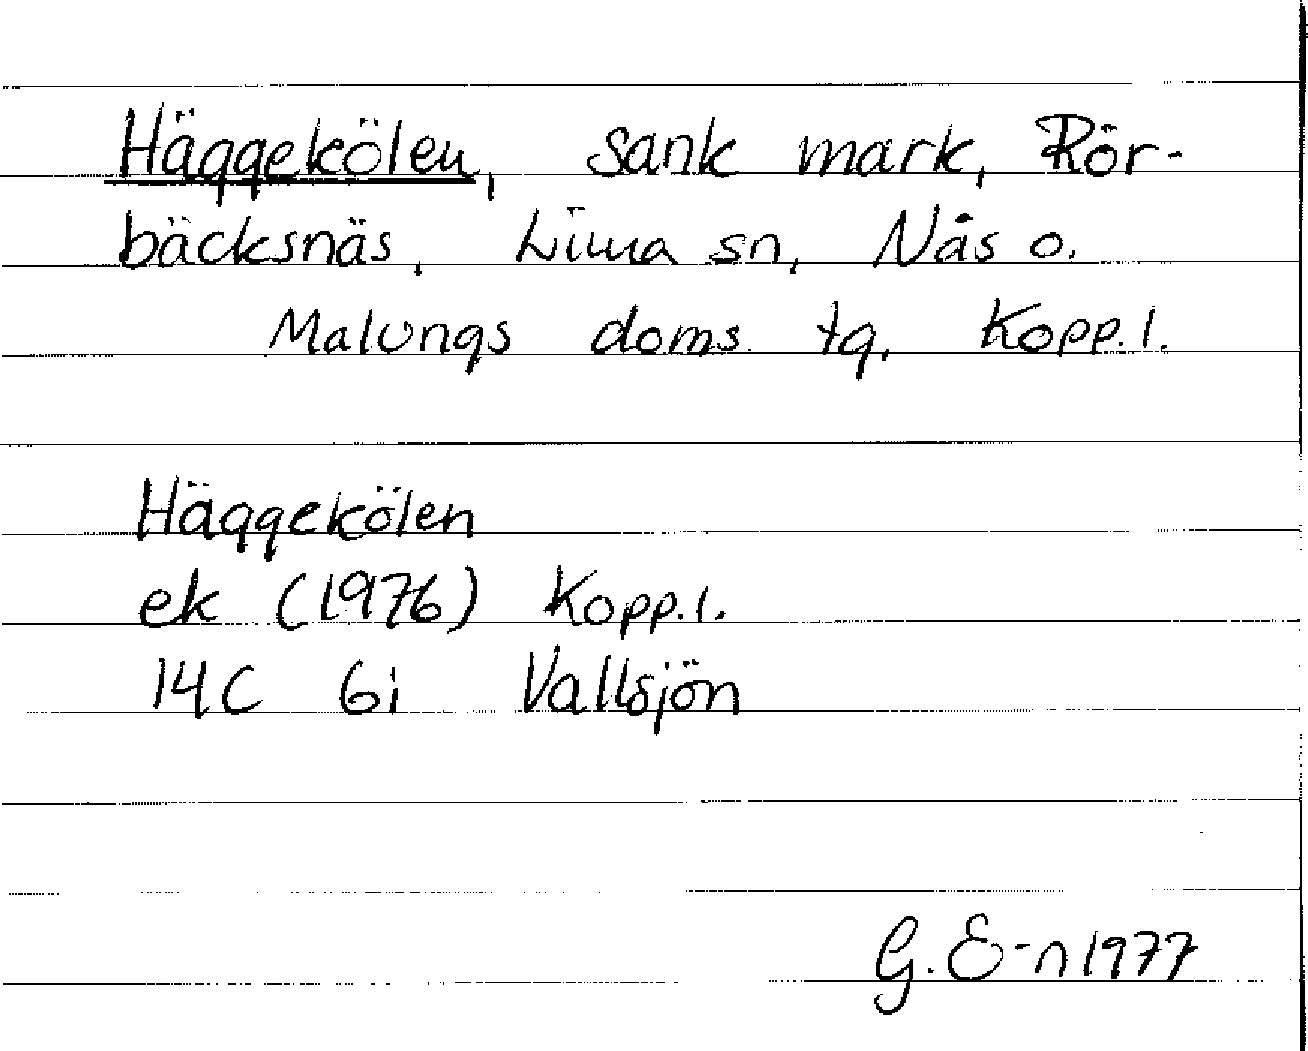 Häggekölen, sank mark, Rör-
bäcksnäs, Lima sn, Nås o.
Malungs doms. tg, Kopp.l.
Häggekölen
ek (1976) Kopp.l.
14C 6i Vallsjön
G. E-n 1977